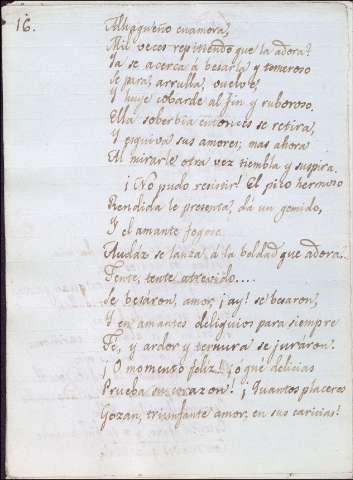 16.
Alhagueño enamora,
Mil veces repitiendo que la adora?
Ya se acerca á besarla y temeroso
Se para, arrulla, vuelve,
Y huye cobarde al fin y ruboroso.
Ella soberbia entonces se retira,
Y esquiva sus amores; mas ahora
Al mirarle otra vez tiembla y suspira.
¡No pudo resistir! El pico hermoso
Rendida le presenta, dá un gemido,
Y el amante fogoso
Audáz se lanza á la beldad que adora.
Tente, tente atrevido....
Se besaron, amor, ¡ay! se besaron,
Y en amantes deliquios para siempre
Fe, y ardor y ternura se juraron.
¡O momento feliz! ¡o qué delicias
Prueba su corazon! ¡Quantos placeres
Gozan, triunfante amor, en sus caricias!